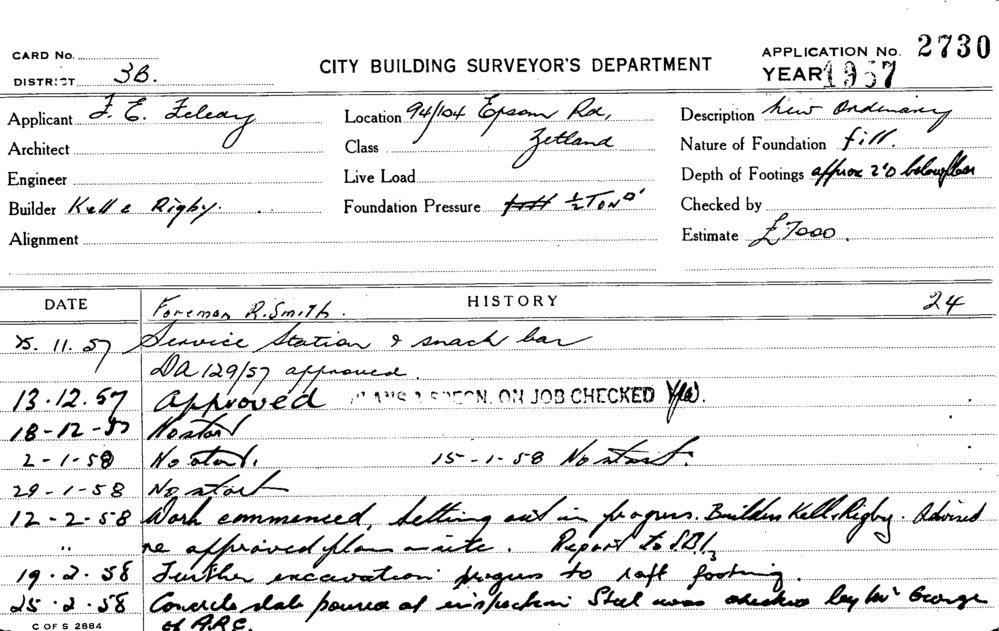 CARD No.
DISTRICT 3B.
CITY BUILDING SURVEYOR'S DEPARTMENT
APPLICATION No. 2730
YEAR 1957
Applicant F. E.
Location 94/104 Epsom Rd,
Description New Ordinary
Architect
Class Zetland
Nature of Foundation fill.
Engineer
Live Load
Depth of Footings approx 2'0 below floor
Builder Kell & Rigby.
Foundation Pressure ½ TON □'
Checked by
Alignment
Estimate £7000.
DATE
HISTORY
24
Foreman R. Smith.
11. 57 Service Station & snack bar
DA 129/57 approved.
13.12.57 Approved PLANS & SPECN. ON JOB CHECKED Yes.
18-12-57 No start
2-1-58 No start. 15-1-58 No start.
29-1-58 No start
12-2-58 Work commenced, setting out in progress. Builders Kell & Rigby. Advised
" re approved plans on site. Report to
19.2.58 Further excavation progress to raft footing.
25.2.58 Concrete slab poured at inspection Steel was checked by Mr George
C OF S 2884
of A.R.C.